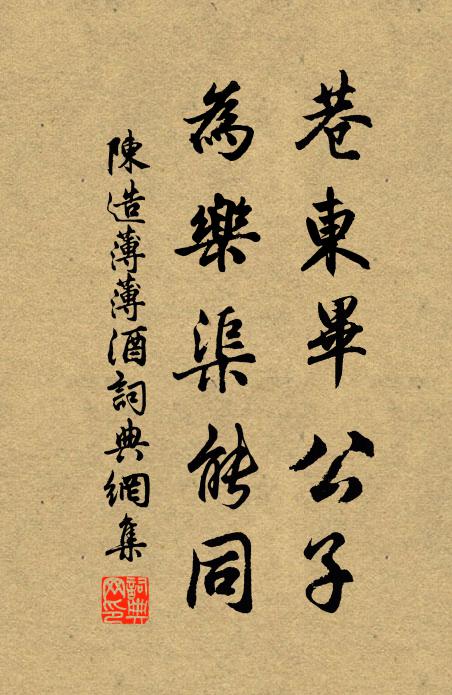 巷東畢公子
為樂渠能同
陳造薄薄酒詞典網集
詞典网印